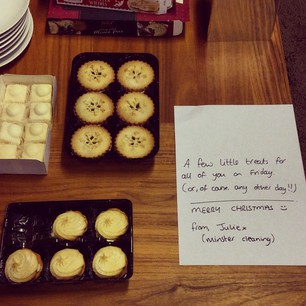 A few little treats for
all of you on Friday
(or, of cause any other day!!)
MERRY CHRISTMAS ☺
from Juliex
(minster cleaning)